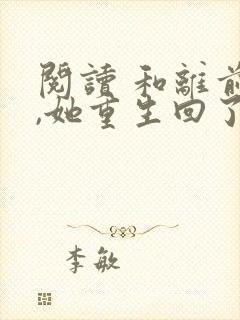 閱讀 和離前
,她重生回了
李敏